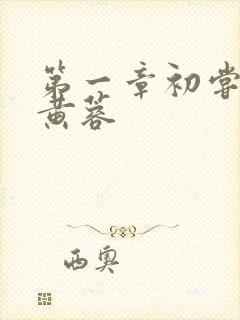 第一章初尝
黄蓉
西奥